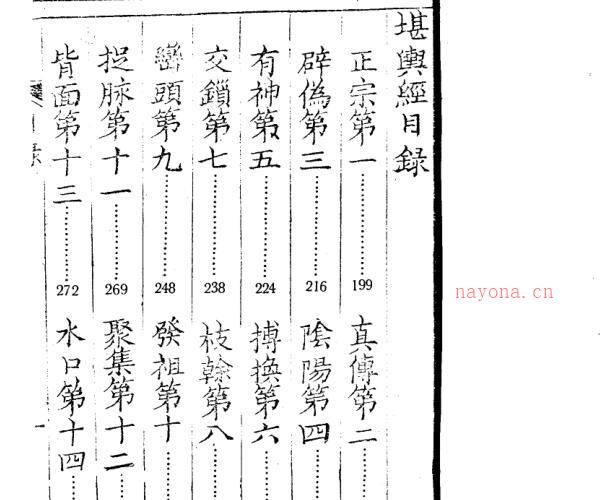 堪輿經目錄
正宗第一 199 真傳第二
辟偽第三 216 陰陽第四
有神第五 224 博換第六
交鎖第七 238 枝榦第八
巒頭第九 248 發祖第十
捉脉第十一 269 聚集第十二
背面第十三 272 水口第十四
nayona.cn